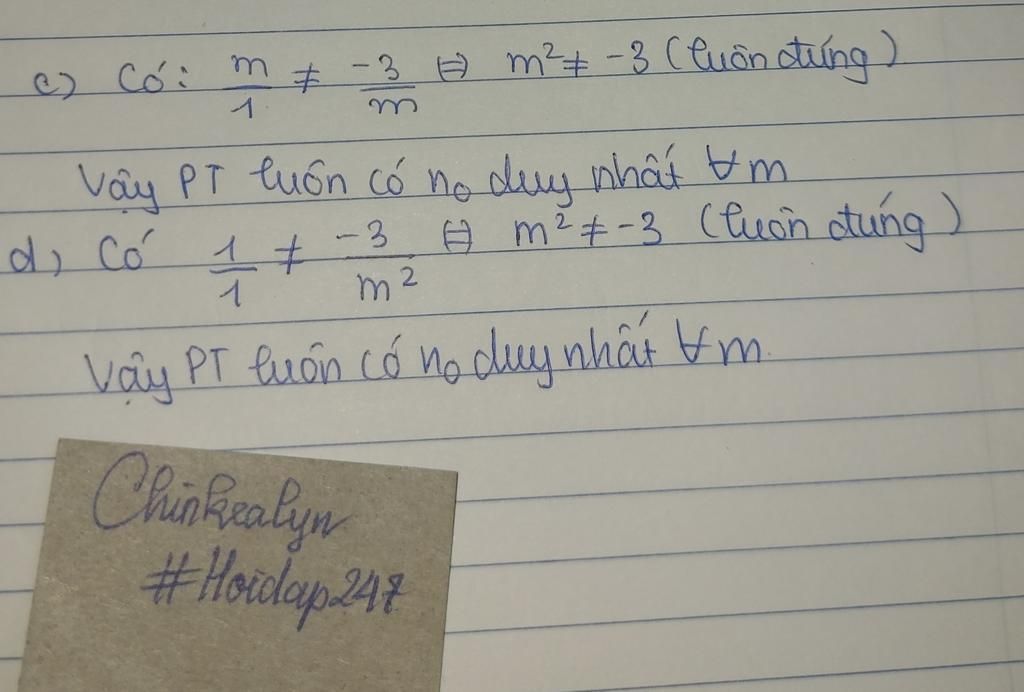 c) Có: m/1 ≠ -3/m ⇔ m² ≠ -3 (luôn đúng)
Vậy PT luôn có n₀ duy nhất ∀m
d) Có 1/1 ≠ -3/m² ⇔ m² ≠ -3 (luôn đúng)
Vậy PT luôn có n₀ duy nhất ∀m.
Chinkealyn
#Hoidap247